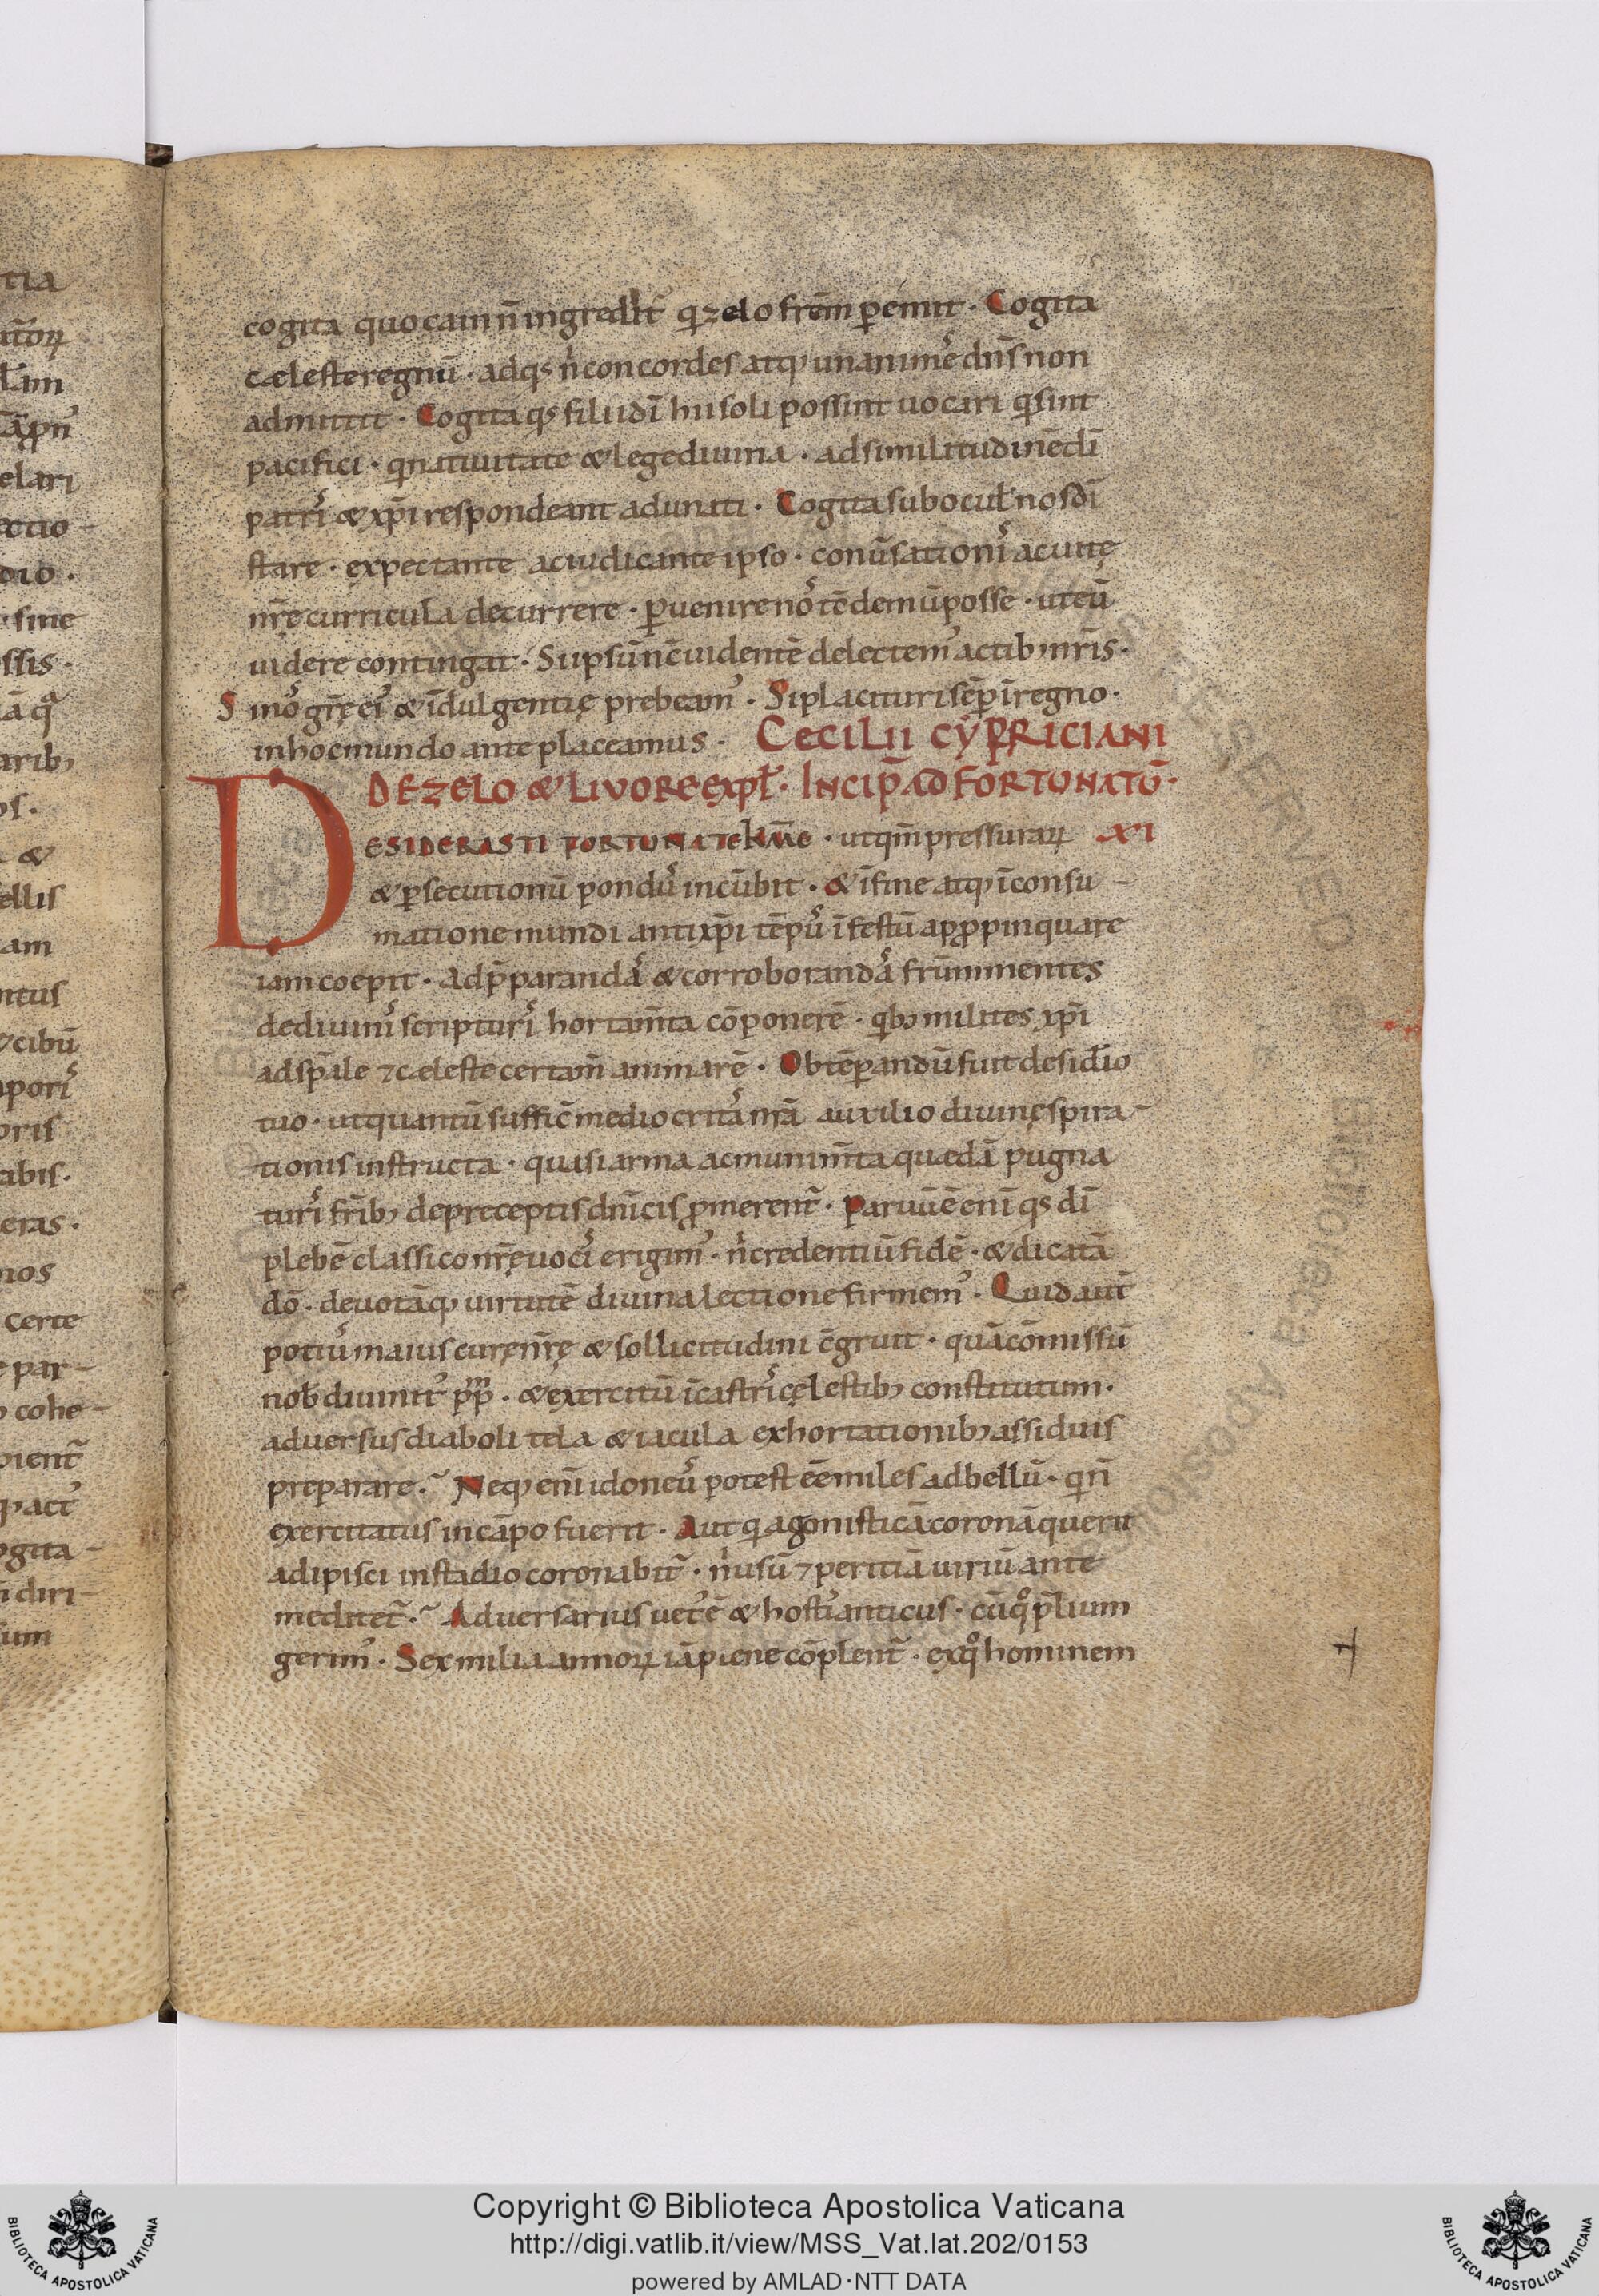 tia
elari
ectio-
dio.
sine
ssis.
arib;
os.
&
ellis
am
ntus
cibū
oris
abis.
eras.
nos
certe
par-
cohe-
ogita-
diri-
um
cogita quo cain n̄ ingredit̄ q; zelo fr̄em p̱emit · Cogita
cæleste regnū · ad qs n̓ concordes atq; unanime᷒ dn̄s non
admittit · Cogita qs filii dī hii soli possint uocari q sint
pacifici · q natiuitate & lege diuina · ad similitudinē dī
patri᷒ & xp̄i respondeant adunati · Cogita sub ocul̄ nos dī
stare · expectante ac iudicante ipso · conūsationi᷒ ac uitę
nr̄ę curricula decurrere · p̱uenire no᷒ tē demū posse · ut eū
uidere contingat · Si ipsū nē uidentē delectem᷒ actib; nr̄is ·
Si no᷒ gr̄ę ei᷒ & īdulgentię prebeam᷒ · Si placituri sēp̱ ī regno ·
in hoc mundo ante placeamus · CECILII CYPRICIANI
DE ZELO & LIVORE EXPL̄ · INCIP̄ AD FORTUNATŪ ·
DESIDERASTI FORTUNATE km̄e · ut qm̄ pressuraꝝ XI
& p̱secutionū pondu᷒ incūbit · & ī fine atq; ī consu-
matione mundi antixp̄i tēpu᷒ īfestū appropinquare
iam coepit · Ad p̄paranda᷒ & corroboranda᷒ frūm mentes
de diuini᷒ scripturi᷒ hortam̄ta cōponerē · qb; milites xp̄i
ad sp̄ale ⁊ cæleste certam̄ animarē · Obtēp̱andū fuit desid̄io
tuo · ut quantū suffic̄ mediocrita᷒ nr̄ā auxilio diuinę spira-
tionis instructa · quasi arma ac munim̄ta quædā pugna
turi᷒ fr̄ib; de preceptis dn̄icis p̱merent̄ · Parum̄ ē enī qs dī
plebē classico nr̄ę uoci᷒ erigim᷒ · n̓ credentiū fidē · & dicatā
dō · deuotāq; uirtutē diuina lectione firmem᷒ · Quid aut̄
potiu᷒ maius curę nr̄ę & sollicitudini c̄gruit · quā cōmissū
nob̄ diuinit᷒ pp̄m · & exercitū ī castri᷒ cęlestib; constitutum ·
aduersus diaboli tela & iacula exhortationib; assiduis
preparare · Neq; eni᷒ idoneu᷒ potest eē miles ad bellū · q n̄
exercitatus in cāpo fuerit · Aut q agonisticā coronā querit
adipisci in stadio coronabit̄ · n̓ usū ⁊ peritiā uiriū ante
meditet̄ · Aduersarius uet᷒ ē & hosti᷒ anticus · cū q͛ p̄lium
gerim᷒ · Sex milia annoꝝ iā piene cōplent̄ · ex q͛ hominem
Copyright © Biblioteca Apostolica Vaticana
http://digi.vatlib.it/view/MSS_Vat.lat.202/0153
powered by AMLAD·NTT DATA
BIBLIOTECA APOSTOLICA VATICANA
BIBLIOTECA APOSTOLICA VATICANA